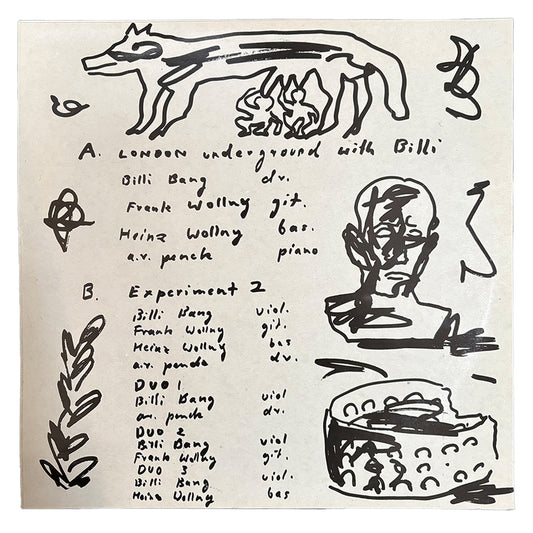 A. LONDON underground with Billi
Billi Bang dr.
Frank Wollny git.
Heinz Wollny bas.
a.r. penck piano
B. Experiment 2
Billi Bang viol.
Frank Wollny git.
Heinz Wollny bas
a.r. penck dr.
DUO 1
Billi Bang viol
a.r. penck dr.
DUO 2
Billi Bang viol
Frank Wollny git.
DUO 3
Billi Bang viol.
Heinz Wollny bas